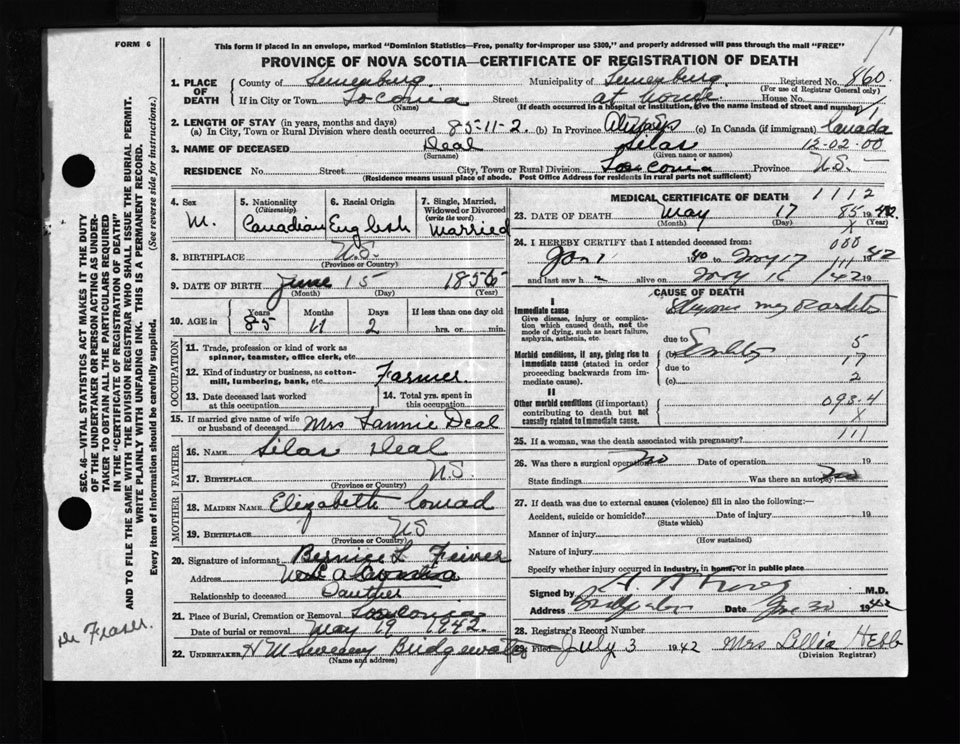 FORM 6
This form if placed in an envelope, marked "Dominion Statistics—Free, penalty for improper use $300," and properly addressed will pass through the mail "FREE"
PROVINCE OF NOVA SCOTIA—CERTIFICATE OF REGISTRATION OF DEATH
1. PLACE OF DEATH { County of Lunenburg Municipality of Lunenburg Registered No. 860
(For use of Registrar General only)
If in City or Town Street at home House No.
(If death occurred in a hospital or institution, give the name instead of street and number)
2. LENGTH OF STAY (in years, months and days)
(a) In City, Town or Rural Division where death occurred 85-11-2. (b) In Province (c) In Canada (if immigrant) Canada
3. NAME OF DECEASED Deal Silas 12-02-00
(Surname) (Given name or names)
RESIDENCE No. Street City, Town or Rural Division Province N.S.
(Residence means usual place of abode. Post Office Address for residents in rural parts not sufficient)
4. Sex M.
5. Nationality (Citizenship) Canadian
6. Racial Origin English
7. Single, Married, Widowed or Divorced (write the word) Married
8. BIRTHPLACE N.S.
(Province or Country)
9. DATE OF BIRTH June 15 1856
(Month) (Day) (Year)
10. AGE in { Years 85 Months 11 Days 2 If less than one day old
hrs. or min.
OCCUPATION
11. Trade, profession or kind of work as spinner, teamster, office clerk, etc.
12. Kind of industry or business, as cotton-mill, lumbering, bank, etc. Farmer.
13. Date deceased last worked at this occupation
14. Total yrs. spent in this occupation
15. If married give name of wife or husband of deceased Mrs Fannie Deal
FATHER
16. NAME Silas Deal
17. BIRTHPLACE N.S.
(Province or Country)
MOTHER
18. MAIDEN NAME Elizabeth Conrad
19. BIRTHPLACE NS
(Province or Country)
20. Signature of informant Bernice L
Address
Relationship to deceased Dauther
21. Place of Burial, Cremation or Removal
Date of burial or removal May 19 1942.
22. UNDERTAKER Bridgewater
(Name and address)
MEDICAL CERTIFICATE OF DEATH 1112
23. DATE OF DEATH May 17 85 1942
(Month) (Day) X
24. I HEREBY CERTIFY that I attended deceased from: 000
Jan 1 40 to May 17 111 42
and last saw h alive on May 16 42 19
CAUSE OF DEATH
I
Immediate cause
Give disease, injury or complication which caused death, not the mode of dying, such as heart failure, asphyxia, asthenia, etc.
due to 5
Morbid conditions, if any, giving rise to immediate cause (stated in order proceeding backwards from immediate cause).
(b) 17
due to
(c) 2
II
Other morbid conditions (important) contributing to death but not causally related to immediate cause.
093-4
X
111
25. If a woman, was the death associated with pregnancy?
26. Was there a surgical operation no Date of operation 19
State findings Was there an autopsy no
27. If death was due to external causes (violence) fill in also the following:—
Accident, suicide or homicide? Date of injury 19
(State which)
Manner of injury
(How sustained)
Nature of injury
Specify whether injury occurred in industry, in home, or in public place
Signed by M.D.
Address Date 1942
28. Registrar's Record Number
29. Filed July 3 1942 Mrs Lillia Hebb
(Division Registrar)
SEC. 46—VITAL STATISTICS ACT MAKES IT THE DUTY
OF THE UNDERTAKER OR PERSON ACTING AS UNDER-
TAKER TO OBTAIN ALL THE PARTICULARS REQUIRED
IN THE "CERTIFICATE OF REGISTRATION OF DEATH"
AND TO FILE THE SAME WITH THE DIVISION REGISTRAR WHO SHALL ISSUE THE BURIAL PERMIT.
WRITE PLAINLY WITH UNFADING INK. THIS IS A PERMANENT RECORD.
Every item of information should be carefully supplied. (See reverse side for instructions.)
Dr Fraser.